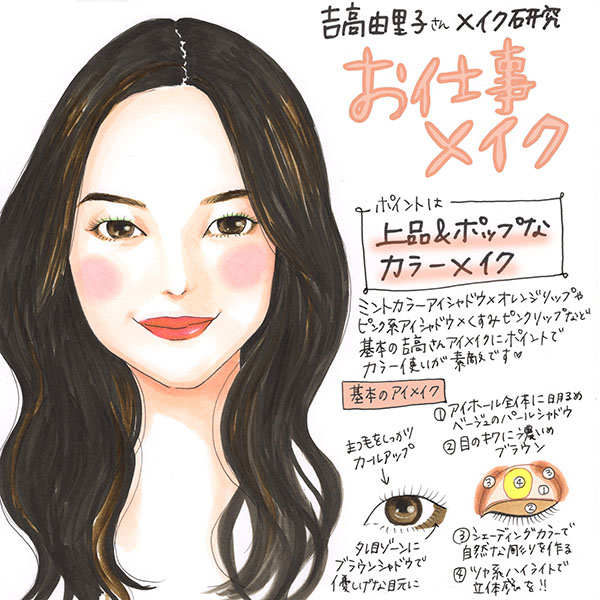 吉高由里子さん メイク研究
お仕事
メイク
ポイントは
上品&ポップな
カラーメイク
ミントカラーアイシャドウ×オレンジリップや
ピンク系アイシャドウ×くすみピンクリップなど
基本の吉高さんアイメイクにポイントで
カラー使いが素敵です♡
基本のアイメイク
①アイホール全体に明るめ
ベージュのパールシャドウ
②目のキワに濃いめ
ブラウン
まつ毛をしっかり
カールアップ
③ ④ ③
①
②
タレ目ゾーンに
ブラウンシャドウで
優しげな目元に
③シェーディングカラーで
自然な彫りを作る
④ツヤ系ハイライトで
立体感を!!